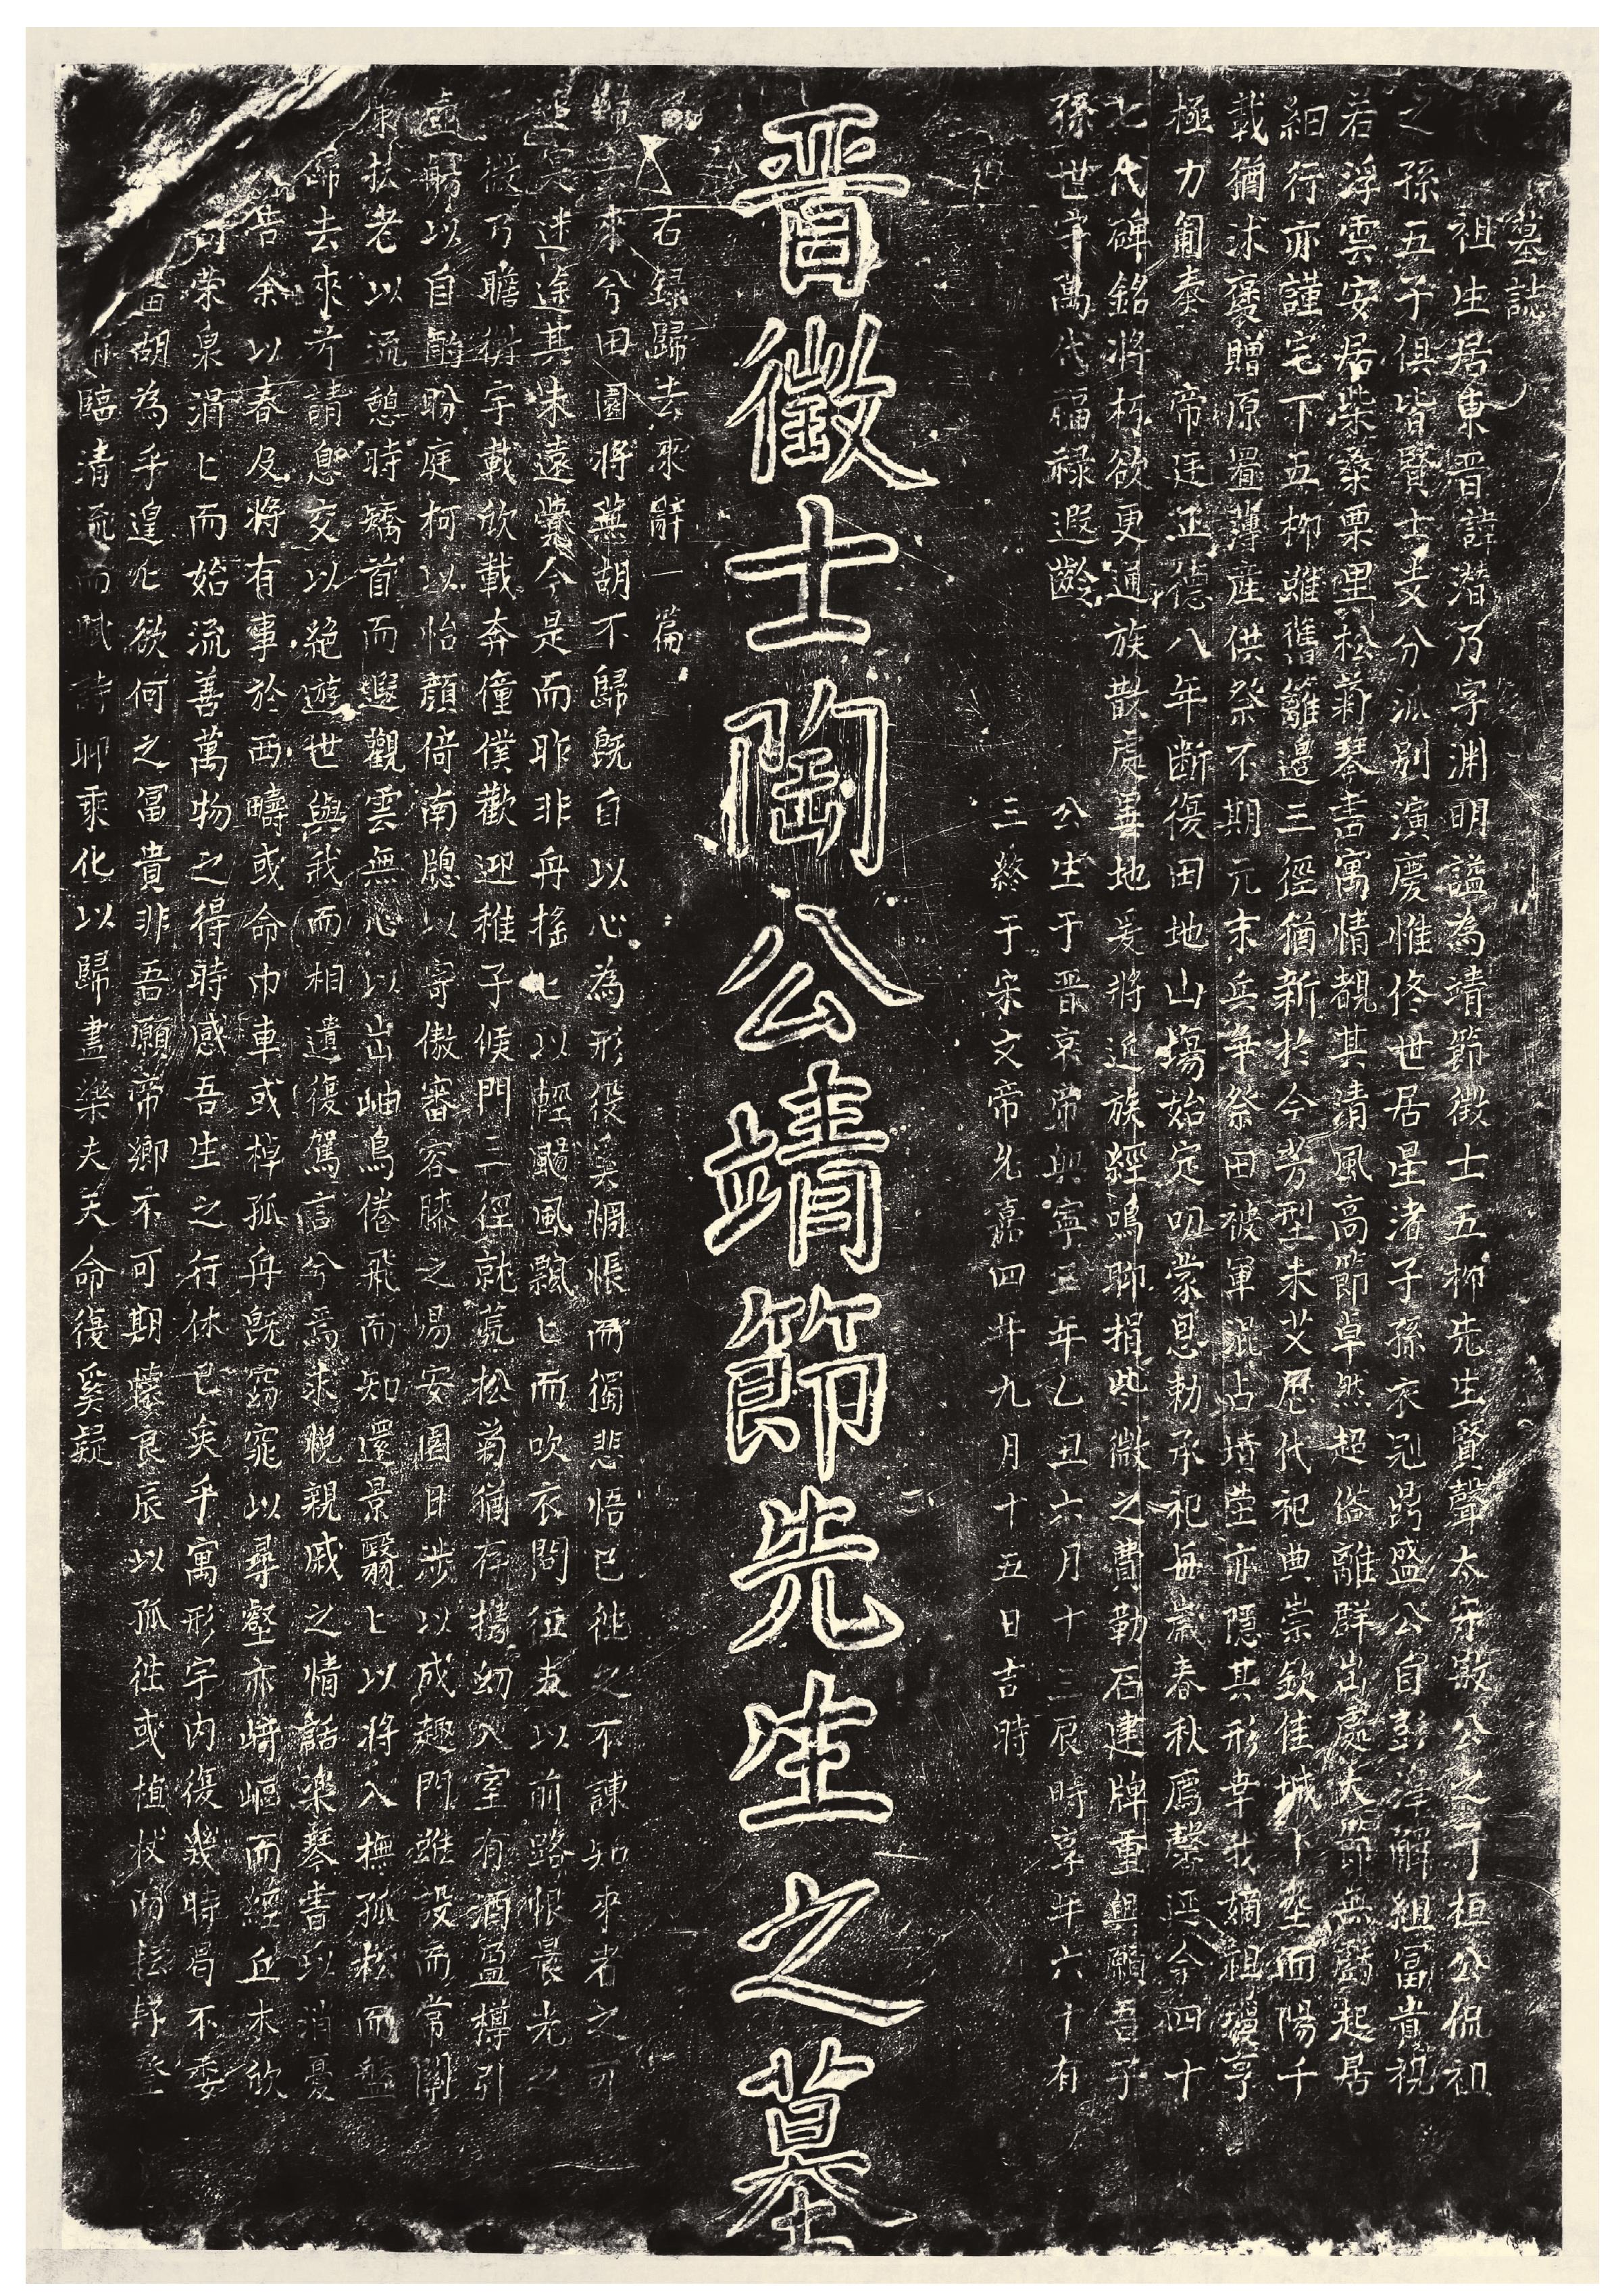 墓誌
祖生居東晋諱潜乃字渊明謚為靖節徵士五柳先生賢聲太守敢公之子桓公侃祖
之孫五子俱皆賢士支分泒别演慶惟佟世居星渚子孫衣冠鼎盛公自彭澤解組冨貴視
若浮雲安居柴桑栗里松菊琴書寓情靚其清風高節卓然超俗離群出處大節無虧起居
細行亦謹宅下五柳雖舊籬邉三徑猶新於今芳型未艾歷代祀典崇欽佳城下塟面陽千
載猶沐褒贈原置薄産供祭不期元末兵爭祭田被軍混占墳茔亦隱其形幸我嫡祖瓊亨
極力匍奏帝廷正德八年断復田地山塲始定叨蒙恩勅承祀每歲春秋薦馨迄今四十
七代碑銘將朽欲更通族散處異地爰將近族經鳴聊捐些微之費勒石建牌重興願吾子
孫世守萬代福禄遐齡
公生于晋哀帝興寧三年乙丑六月十三辰時享年六十有
三終于宋文帝允嘉四年九月十五日吉時
晋徵士陶公靖節先生之墓
右録歸去來辭一篇
來兮田園將蕪胡不歸既自以心為形役奚惆悵而獨悲悟已徃之不諫知來者之可
追寔迷途其未遠覺今是而昨非舟搖匕以輕颺風飄匕而吹衣問征夫以前路恨晨光之
微乃瞻衡宇載欣載奔僮僕歡迎稚子候門三徑就荒松菊猶存携幼入室有酒盈樽引
壺觴以自酌盼庭柯以怡顔倚南牕以寄傲審容膝之昜安園日涉以成趣門雖設而常関
扶老以流憩時矯首而遐觀雲無心以出岫鳥倦飛而知還景翳匕以將入撫孤松而盤
歸去來兮請息交以絶遊世與我而相遺復駕言兮焉求悅親戚之情話樂琴書以消憂
告余以春及將有事於西疇或命巾車或棹孤舟既窈窕以尋壑亦崎嶇而經丘木欣
向荣泉涓匕而始流善萬物之得時感吾生之行休已矣乎寓形宇内復幾時曷不委
留胡為乎遑匕欲何之冨貴非吾願帝鄉不可期懷良辰以孤徃或植杖而耘耔登
臨清流而賦詩聊乘化以歸盡樂夫天命復奚疑